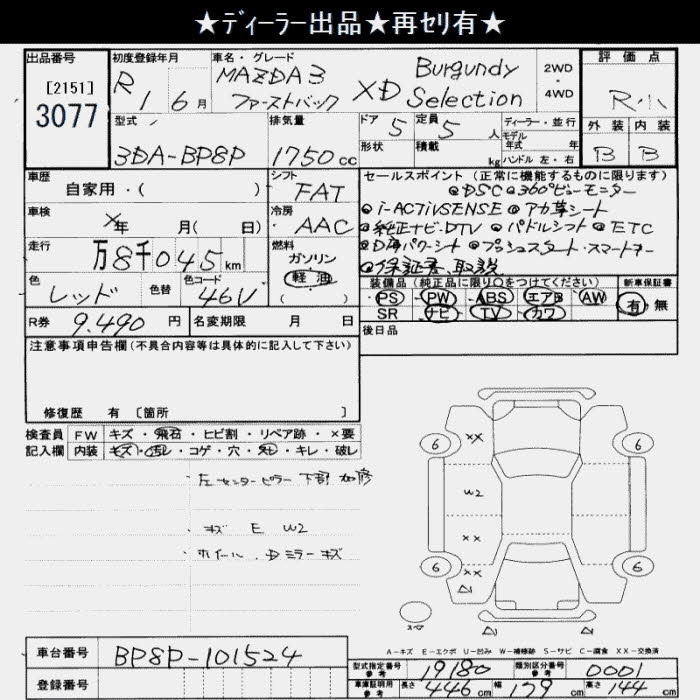 ★ディーラー出品★再セリ有★
出品番号
[2151]
3077
初度登録年月
R 1年 6月
車名・グレード
MAZDA3
ファーストバック
XD
Burgundy
Selection
2WD
4WD
評価点
R.小
外装 内装
B B
型式
3DA-BP8P
排気量
1750 cc
ドア
5
定員
5 人
形状
積載
kg
ディーラー・並行
モデル
年式 年
ハンドル 左・右
車歴
自家用・( )
シフト
FAT
車検
年 月( 日)
冷房
AAC
走行
万8千045 km
燃料
ガソリン
軽油
( )
色
レッド
色替
色コード
46V
R券
9.490 円
名変期限 月 日
セールスポイント (正常に機能するものに限ります)
◎DSC ◎360°ビューモニター
◎i-ACTIVSENSE ◎アカ革シート
◎純正ナビ・DTV ◎パドルシフト ◎ETC
◎D席パワーシート ◎プッシュスタート・スマートキー
◎保証書、取説
装備品(純正品に限り○をつけてください)
PS・PW・ABS・エアB・AW
SR・ナビ・TV・カワ
新車保証書
有・無
後日品
注意事項申告欄(不具合内容等は具体的に記入して下さい)
修復歴 有 [箇所 ]
検査員
記入欄
FW キズ・飛石・ヒビ割・リペア跡・×要
内装 キズ・汚レ・コゲ・穴・欠・キレ・破レ
・左センターピラー下部 加修
・キズ E W2
・ホイール、Dミラーキズ
6
6
6
6
XX
W2
XX
XX
スペア
A-キズ E-エクボ U-凹み W-補修跡 S-サビ C-腐食 XX-交換済
車台番号
BP8P-101524
登録番号
型式指定番号
参考
19180
類別区分番号
参考
0001
車庫証明用
参考
長さ 446 cm 幅 179 cm 高さ 144 cm